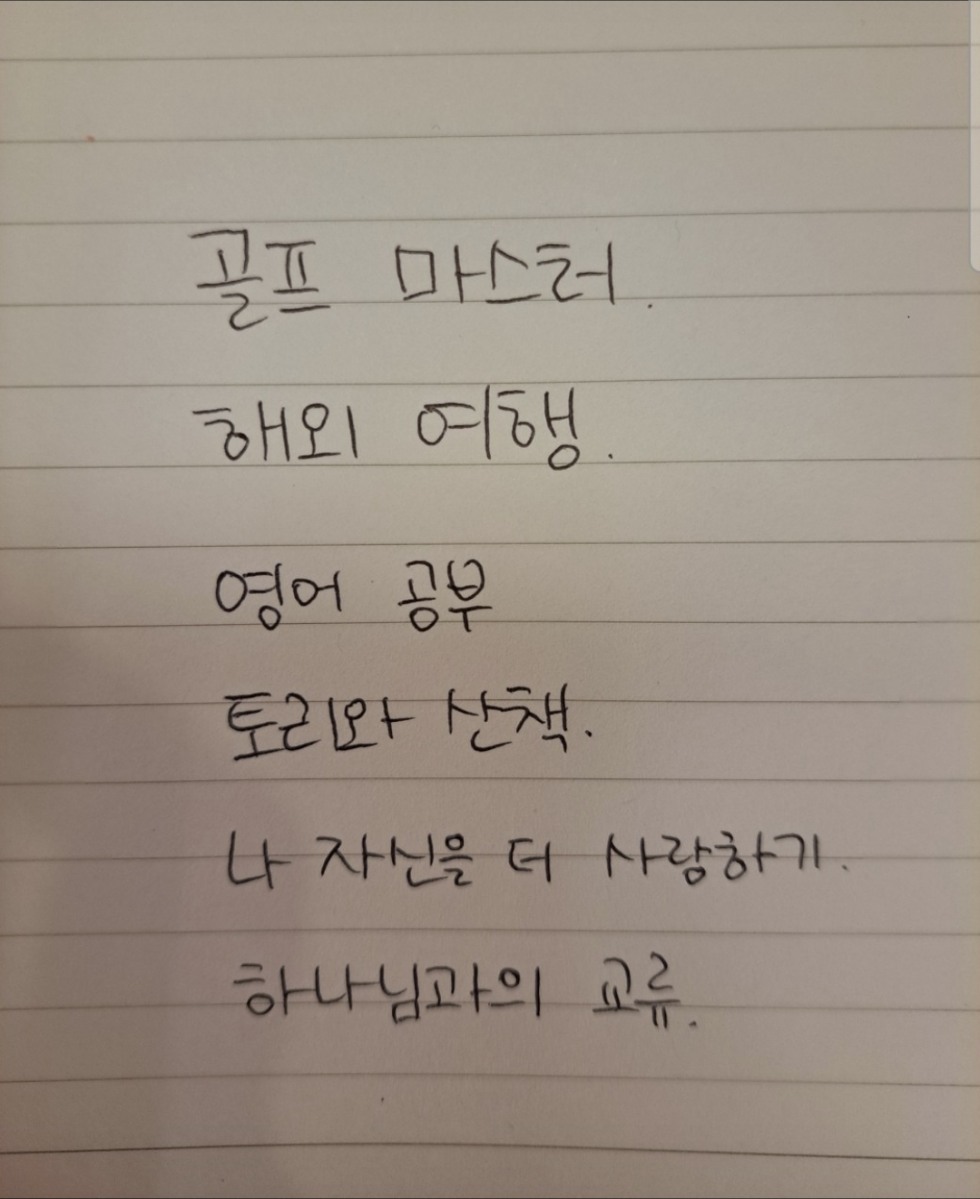 골프 마스터.
해외 여행.
영어 공부
토리와 산책.
나 자신을 더 사랑하기.
하나님과의 교류.